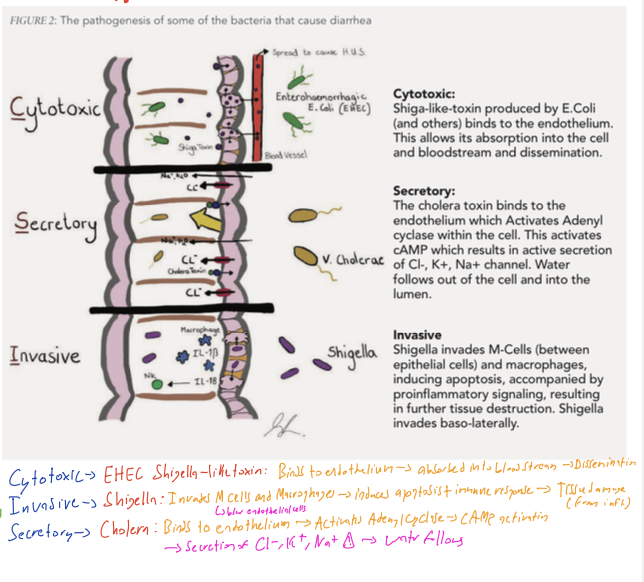 FIGURE 2: The pathogenesis of some of the bacteria that cause diarrhea
Cytotoxic
Spread to cause H.U.S
Enterohaemorrhagic
E. Coli (EHEC)
Shiga Toxin
Blood Vessel
Cytotoxic:
Shiga-like-toxin produced by E.Coli
(and others) binds to the endothelium.
This allows its absorption into the cell
and bloodstream and dissemination.
Secretory
CL⁻
CL⁻
Cholera Toxin
CL⁻
V. Cholerae
Secretory:
The cholera toxin binds to the
endothelium which Activates Adenyl
cyclase within the cell. This activates
cAMP which results in active secretion
of Cl-, K+, Na+ channel. Water
follows out of the cell and into the
lumen.
Invasive
Macrophage
IL-1β
NK
IL-18
Shigella
Invasive
Shigella invades M-Cells (between
epithelial cells) and macrophages,
inducing apoptosis, accompanied by
proinflammatory signaling, resulting
in further tissue destruction. Shigella
invades baso-laterally.
Cytotoxic → EHEC Shigella-like toxin: Binds to endothelium → absorbed into bloodstream → Dissemination
Invasive → Shigella: Invades M cells and Macrophages → induces apoptosis + immune response → Tissue damage
↳ b/w endothelial cells (from infl)
Secretory → Cholera: Binds to endothelium → Activates Adenylcyclase → CAMP activation
→ Secretion of Cl-, K+, Na+ → water follows